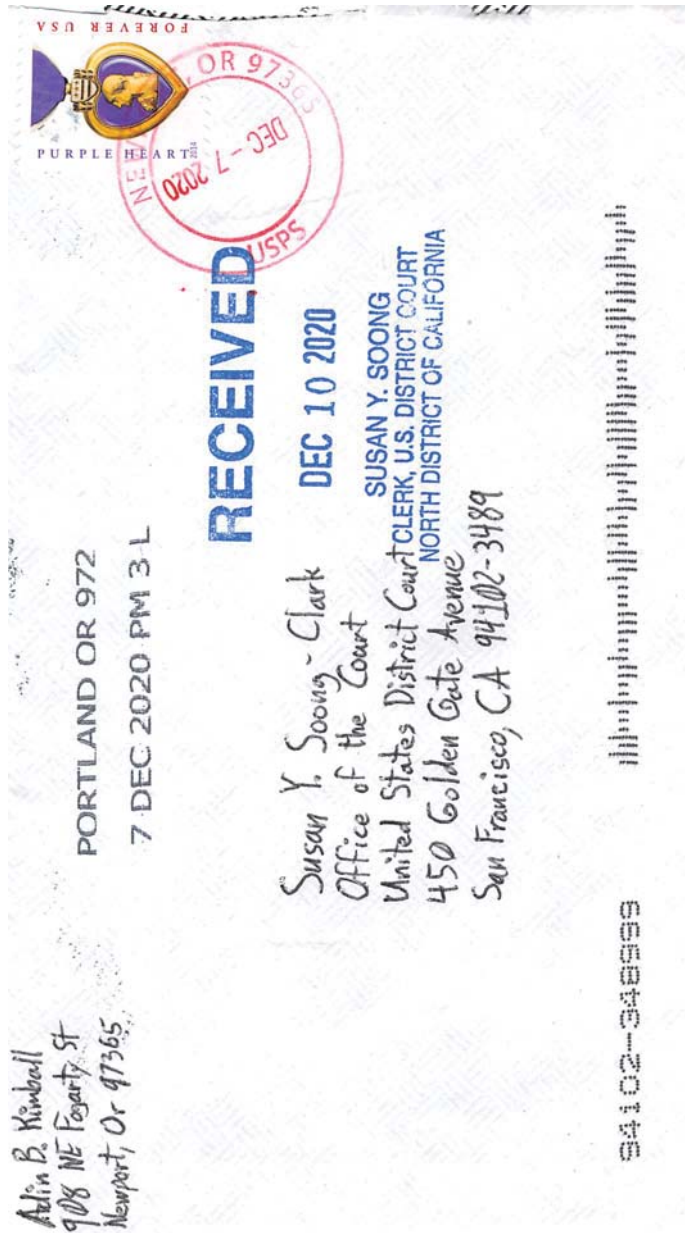 Adin B. Kimball
908 NE Fogarty St
Newport, Or 97365
PORTLAND OR 972
7 DEC 2020 PM 3 L
FOREVER USA
PURPLE HEART
OR 97365
DEC - 7 2020
USPS
RECEIVED
DEC 10 2020
SUSAN Y. SOONG
CLERK, U.S. DISTRICT COURT
NORTH DISTRICT OF CALIFORNIA
Susan Y. Soong - Clark
Office of the Court
United States District Court
450 Golden Gate Avenue
San Francisco, CA 94102-3489
94102-348999